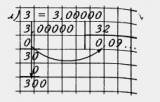 л) 3 = 3,00000
3,00000 | 32
0 | 0,09...
30
0
300